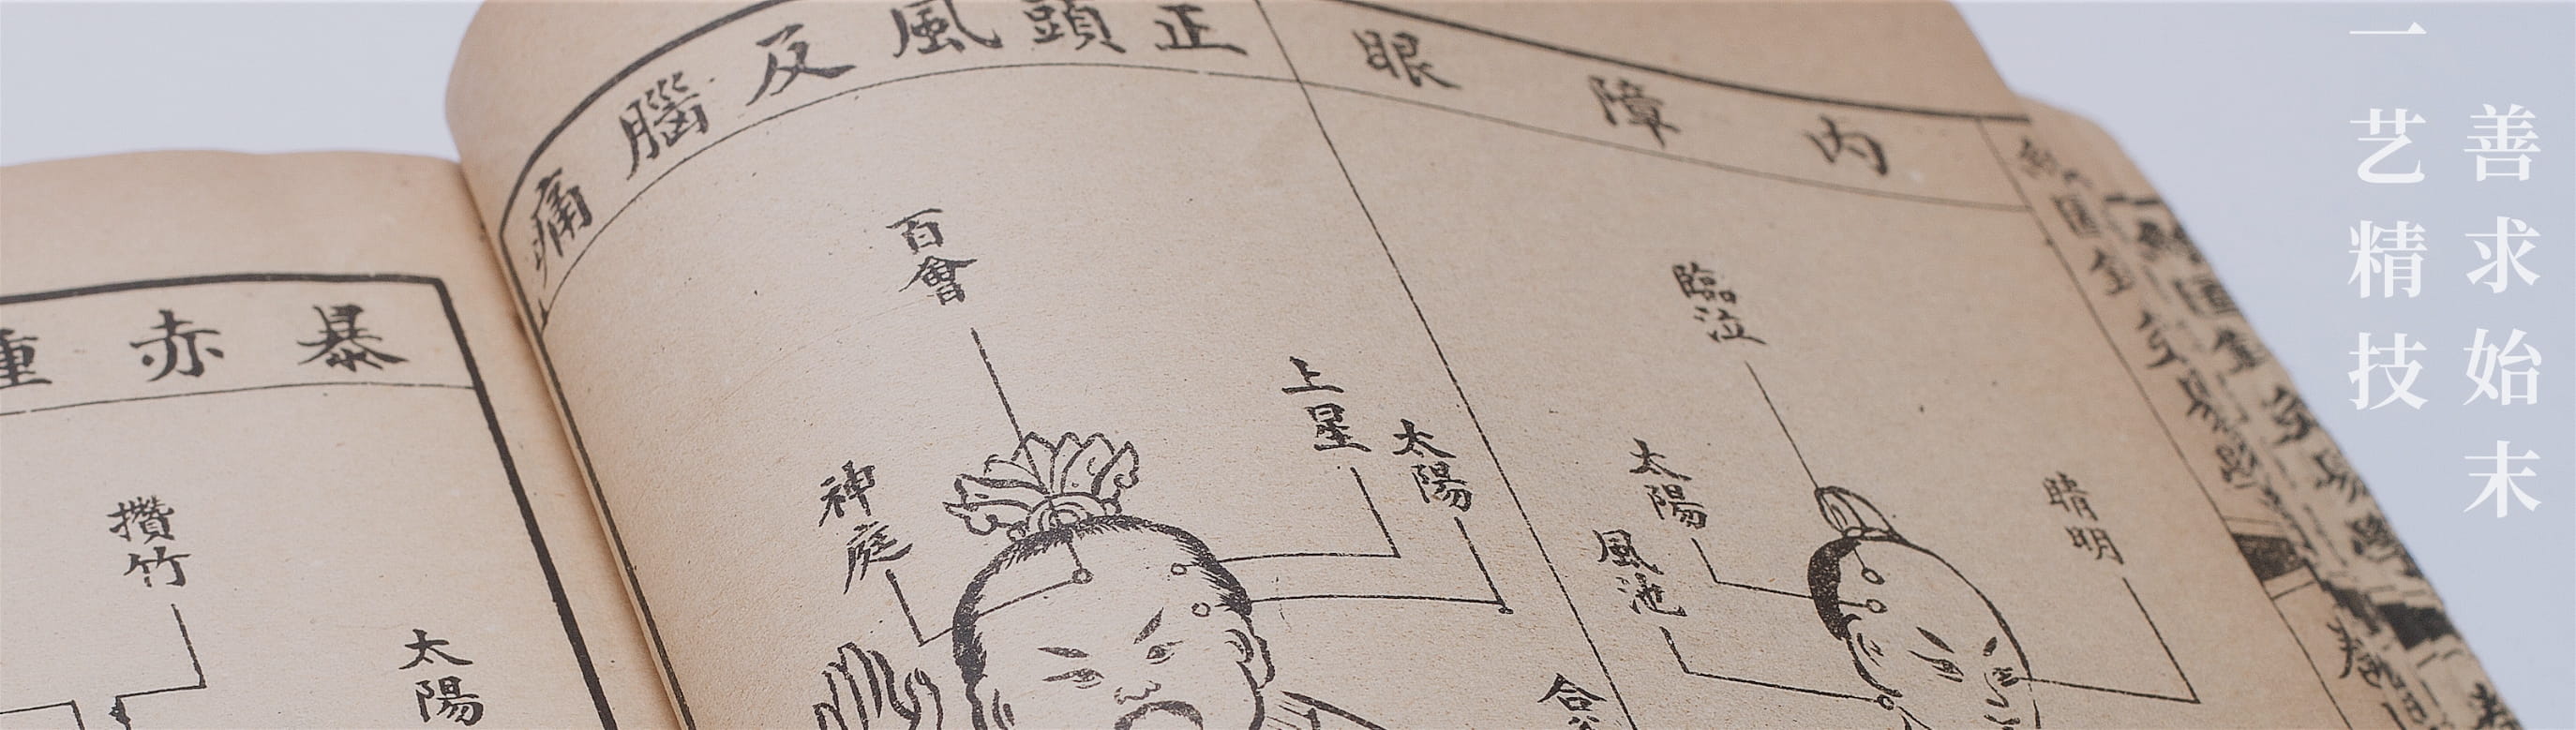 善求始末
一艺精技
內障眼
正頭風及腦痛
臨泣
睛明
太陽
風池
百會
上星
太陽
神庭
合
暴赤
攢竹
太陽